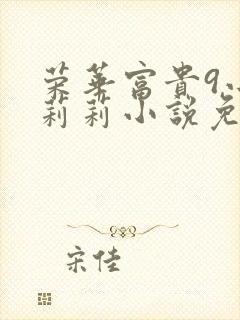 荣華富貴9
莉莉小説免
宋佳